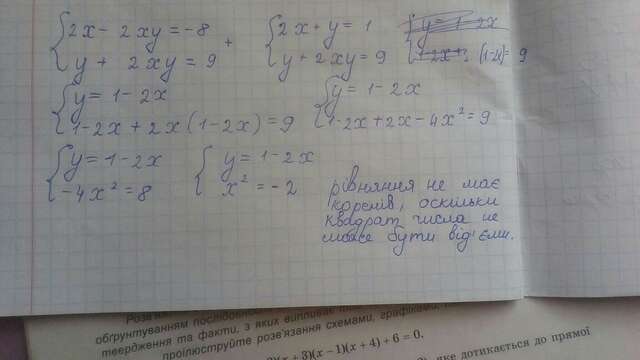 2x - 2xy = -8
y + 2xy = 9
+
2x + y = 1
y + 2xy = 9
y = 1 - 2x
(1-2x) = 9
y = 1 - 2x
1-2x + 2x(1-2x) = 9
y = 1 - 2x
1-2x+2x-4x² = 9
y = 1-2x
-4x² = 8
y = 1-2x
x² = -2
рівняння не має
коренів, оскільки
квадрат числа не
може бути від'ємн.
обґрунтуванням послідовнос
твердження та факти, з яких випливає
проілюструйте розв'язання схемами, графіками,
x+3)(x-1)(x+4)+6=0,
яке дотикається до прямої